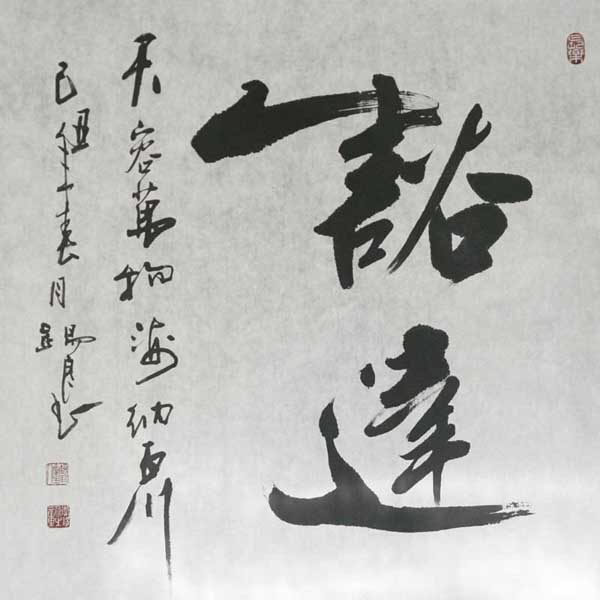 豁達
天容萬物海納百川
己丑年春月